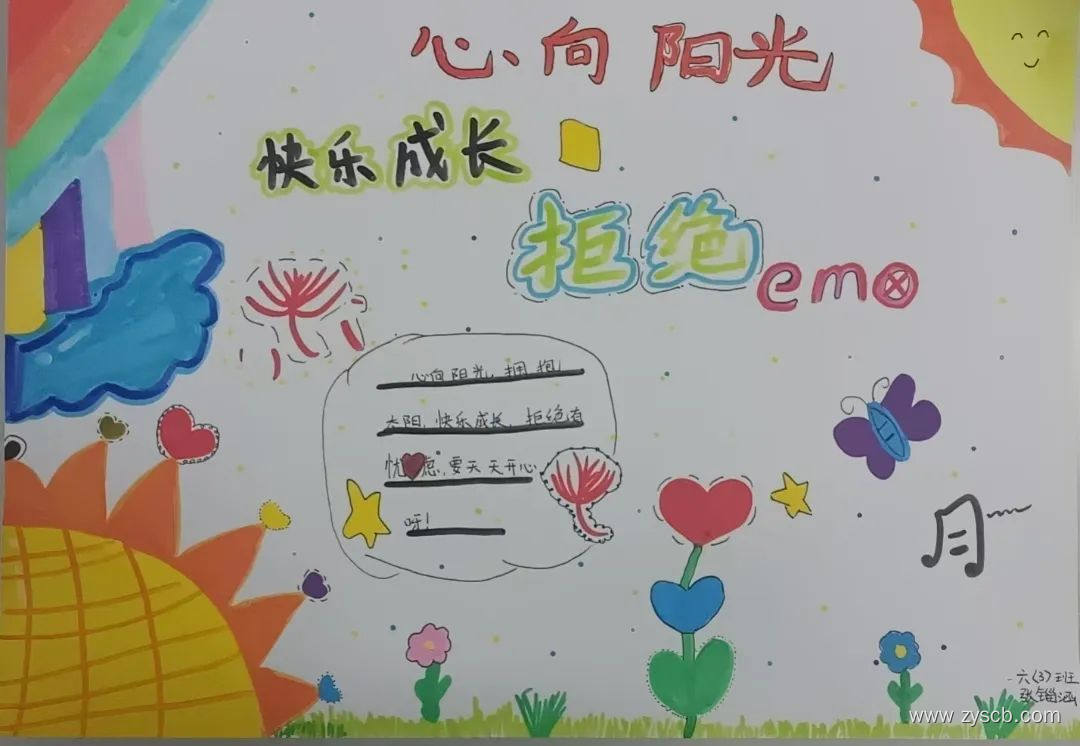 心向阳光
快乐成长
拒绝emo
心向阳光，拥抱
太阳，快乐成长，拒绝有
忧虑，要天天开心
呀！
六(3)班
张锱涵
www.zyscb.com